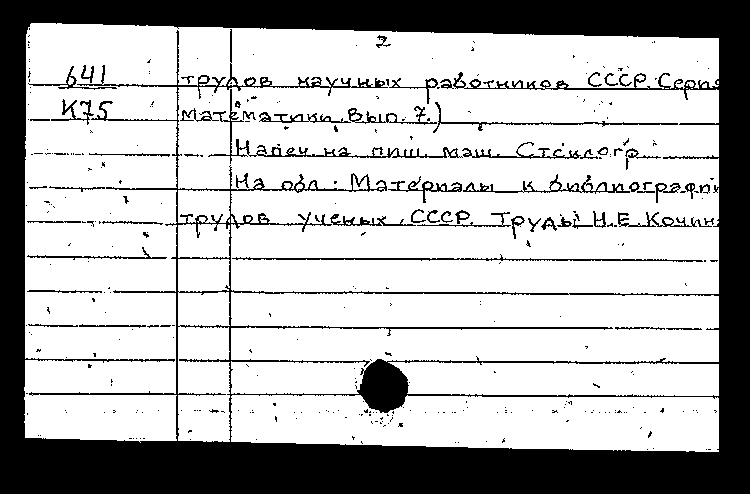 2
641
К75
трудов научных работников СССР. Серия
математики. Вып. 7.)
Напеч. на пиш. маш. Стеклогр.
На обл.: Материалы к библиографии
трудов ученых СССР. Труды Н.Е. Кочина